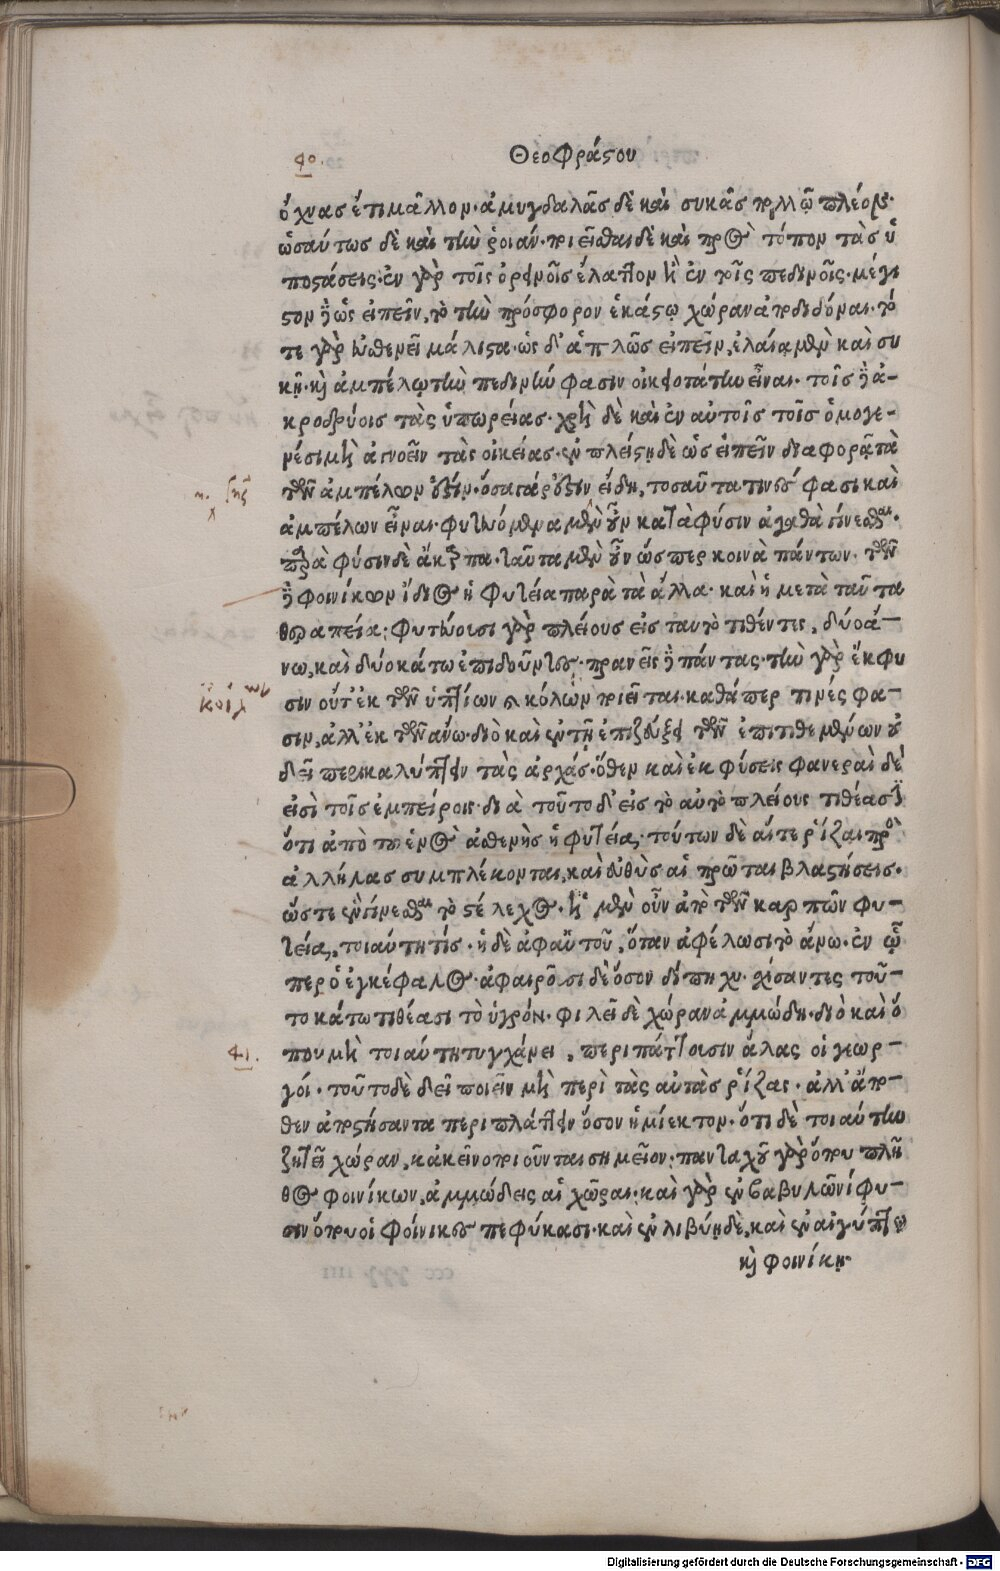 40. Θεοφράστου
ὄχνας ἔτι μᾶλλον· ἀμυγδαλᾶς δὲ καὶ συκᾶς πολλῷ πλέον·
ὡσαύτως δὲ καὶ τὴν ῥοιάν· ποιεῖσθαι δὲ καὶ πρὸς τόπον τὰς ὑ
ποστάσεις· ἐν γὰρ τοῖς ὀρεινοῖς ἐλάττον ἢ ἐν τοῖς πεδινοῖς· μέγι
στον δὲ ὡς εἰπεῖν, τὸ τὴν πρόσφορον ἑκάστῳ χώραν ἀποδιδόναι· τό
τε γὰρ εὐθενεῖ μάλιστα· ὡς δ' ἁπλῶς εἰπεῖν, ἐλαίᾳ μὲν καὶ συ
κῇ· καὶ ἀμπέλῳ τὴν πεδινὴν φασιν οἰκειοτάτην εἶναι· τοῖς δὲ ἀ-
κροδρύοις τὰς ὑπωρείας· χρὴ δὲ καὶ ἐν αὐτοῖς τοῖς ὁμογε-
νέσι μὴ ἀγνοεῖν τὰς οἰκείας· ἐν πλείστῃ δὲ ὡς εἰπεῖν διαφορᾷ τὰ
τῶν ἀμπέλων ἐστίν· ὅσα γάρ ἐστιν εἴδη, τοσαῦτα τινὲς φασι καὶ
ἀμπέλων εἶναι· φυτευόμενα μὲν οὖν κατὰ φύσιν ἀγαθὰ γίνεσθαι·
παρὰ φύσιν δὲ ἄκαρπα· ταῦτα μὲν οὖν ὥσπερ κοινὰ πάντων· τῶν
δὲ φοινίκων ἴδιος ἡ φυτεία παρὰ τὰ ἄλλα· καὶ ἡ μετὰ ταῦτα
θεραπεία· φυτεύουσι γὰρ πλείους εἰς ταυτὸ τιθέντες, δύο ἄ-
νω, καὶ δύο κάτω ἐπιδοῦντες· πρανεῖς δὲ πάντας· τὴν γὰρ ἔκφυ
σιν οὐτ' ἐκ τῶν ὑπτίων & κόλων ποιεῖται· καθάπερ τινές φα-
σιν, ἀλλ' ἐκ τῶν ἄνω· διὸ καὶ ἐν τῇ ἐπιζεύξει τῶν ἐπιτιθεμένων οὐ
δεῖ περικαλύπτειν τὰς ἀρχάς· ὅθεν καὶ ἐκφύσεις φανεραὶ δέ
εἰσὶ τοῖς ἐμπείροις· διὰ τοῦτο δ' εἰς τὸ αὐτὸ πλείους τιθέασι
ὅτι ἀπὸ τοῦ ἑνὸς ἀσθενὴς ἡ φυτεία· τούτων δὲ αἵ τε ῥίζαι πρὸς
ἀλλήλας συμπλέκονται, καὶ εὐθὺς αἱ πρῶται βλαστήσεις·
ὥστε ἓν γίνεσθαι τὸ στέλεχος· ἡ μὲν οὖν ἀπὸ τῶν καρπῶν φυ-
τεία, τοιαύτη τίς· ἡ δὲ ἀφ' αὑτοῦ, ὅταν ἀφέλωσι τὸ ἄνω· ἐν ᾧ
περ ὁ ἐγκέφαλος· ἀφαιροῦσι δὲ ὅσον δίπηχυ· σχίσαντες τοῦ-
το κάτω τιθέασι τὸ ὑγρόν· φιλεῖ δὲ χώραν ἀμμώδη· διὸ καὶ ὅ
41. που μὴ τοιαύτη τυγχάνει, περιπάττουσιν ἅλας οἱ γεωρ-
γοί· τοῦτο δὲ δεῖ ποιεῖν μὴ περὶ τὰς αὐτὰς ῥίζας· ἀλλ' ἄπο-
θεν ἀποστήσαντα περιπλάττειν ὅσον ἡμίεκτον· ὅτι δὲ τοιαύτην
ζητεῖ χώραν, κἀκεῖνο ποιοῦνται σημεῖον· πανταχοῦ γὰρ ὅπου πλῆ
θος φοινίκων, ἀμμώδεις αἱ χῶραι· καὶ γὰρ ἐν βαβυλῶνί φα-
σιν ὅπου οἱ φοίνικες πεφύκασι· καὶ ἐν λιβύῃ δὲ, καὶ ἐν αἰγύπτῳ
καὶ φοινίκῃ·
Digitalisierung gefördert durch die Deutsche Forschungsgemeinschaft - DFG